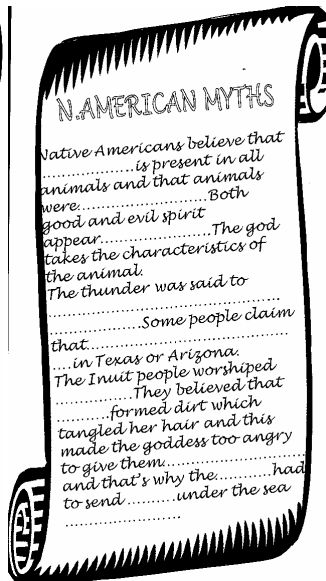 N.AMERICAN MYTHS
Native Americans believe that
....................is present in all
animals and that animals
were............................Both
good and evil spirit
appear........................The god
takes the characteristics of
the animal.
The thunder was said to
..................................................
....................Some people claim
that...........................................
....in Texas or Arizona.
The Inuit people worshiped
.................They believed that
............formed dirt which
tangled her hair and this
made the goddess too angry
to give them..............................
and that's why the............had
to send ..........under the sea
.........................